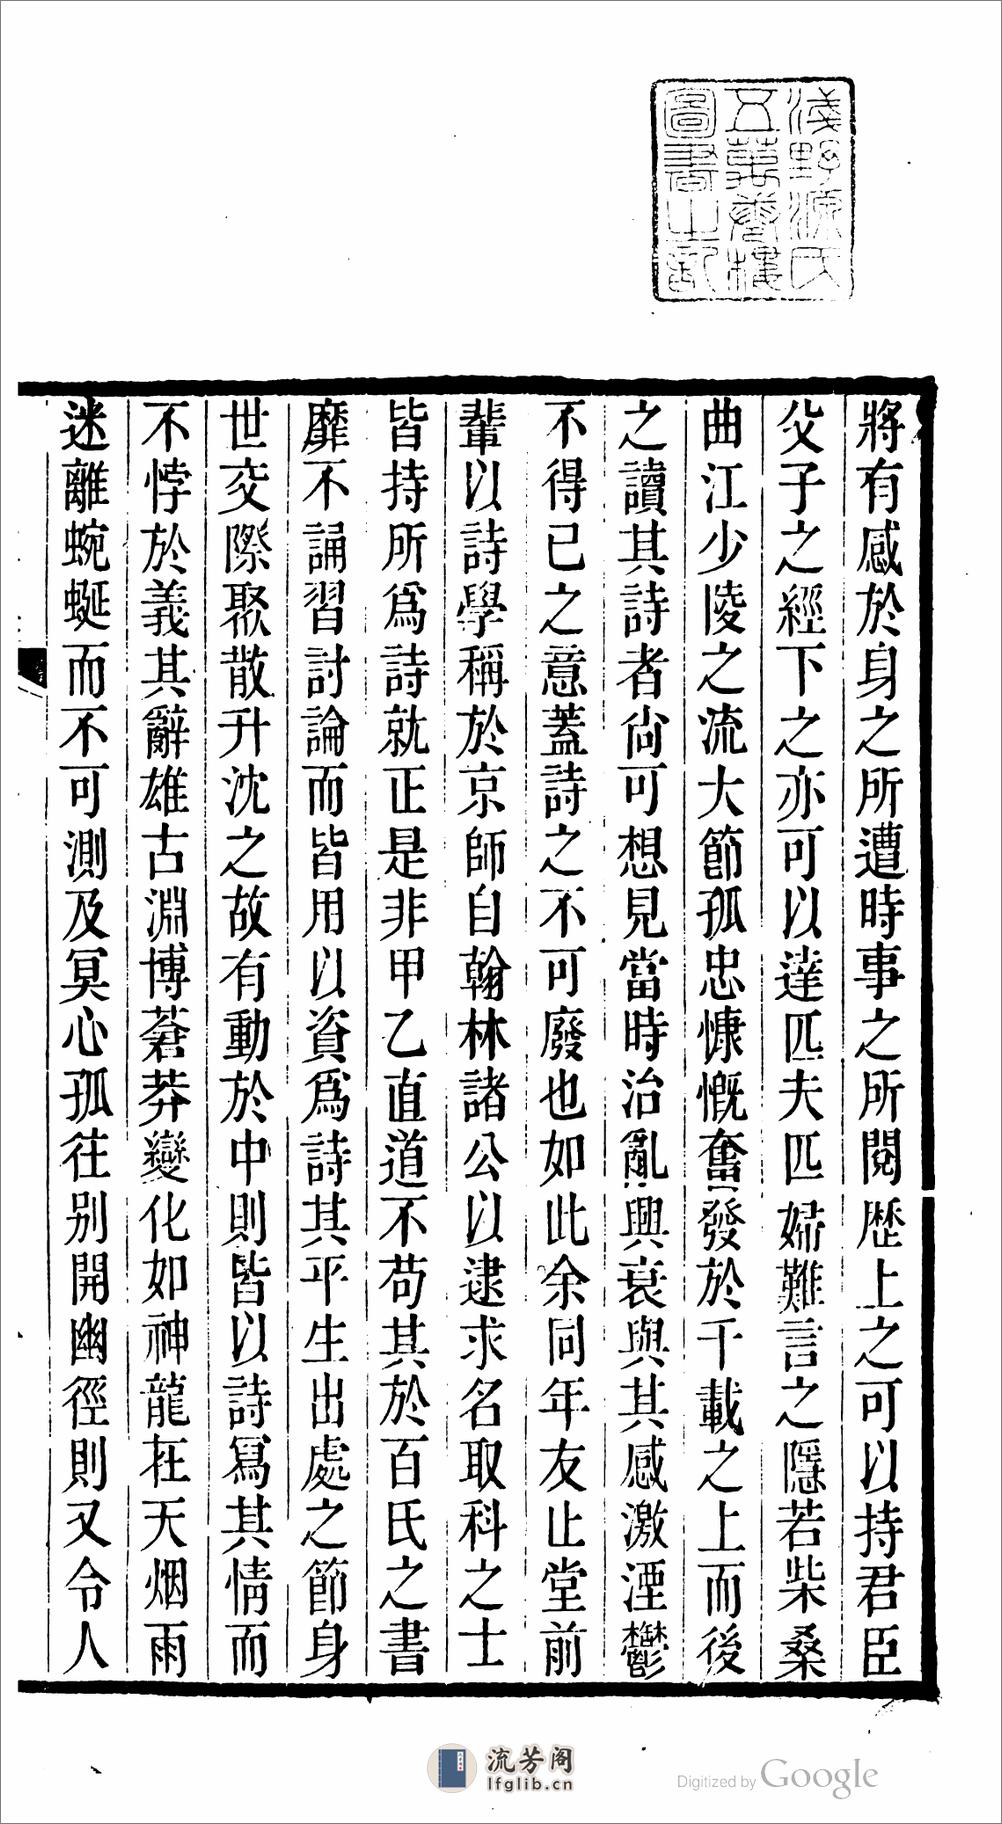 淺野源氏
五萬卷樓
圖書之記
將有感於身之所遭時事之所閱歴上之可以持君臣
父子之經下之亦可以達匹夫匹婦難言之隱若柴桑
曲江少陵之流大節孤忠慷慨奮發於千載之上而後
之讀其詩者尙可想見當時治亂興衰與其感激湮鬱
不得已之意蓋詩之不可廢也如此余同年友止堂前
輩以詩學稱於京師自翰林諸公以逮求名取科之士
皆持所爲詩就正是非甲乙直道不苟其於百氏之書
靡不誦習討論而皆用以資爲詩其平生出處之節身
世交際聚散升沈之故有動於中則皆以詩寫其情而
不悖於義其辭雄古淵博蒼莽變化如神龍在天烟雨
迷離蜿蜒而不可測及冥心孤往别開幽徑則又令人
流芳阁
lfglib.cn
Digitized by Google